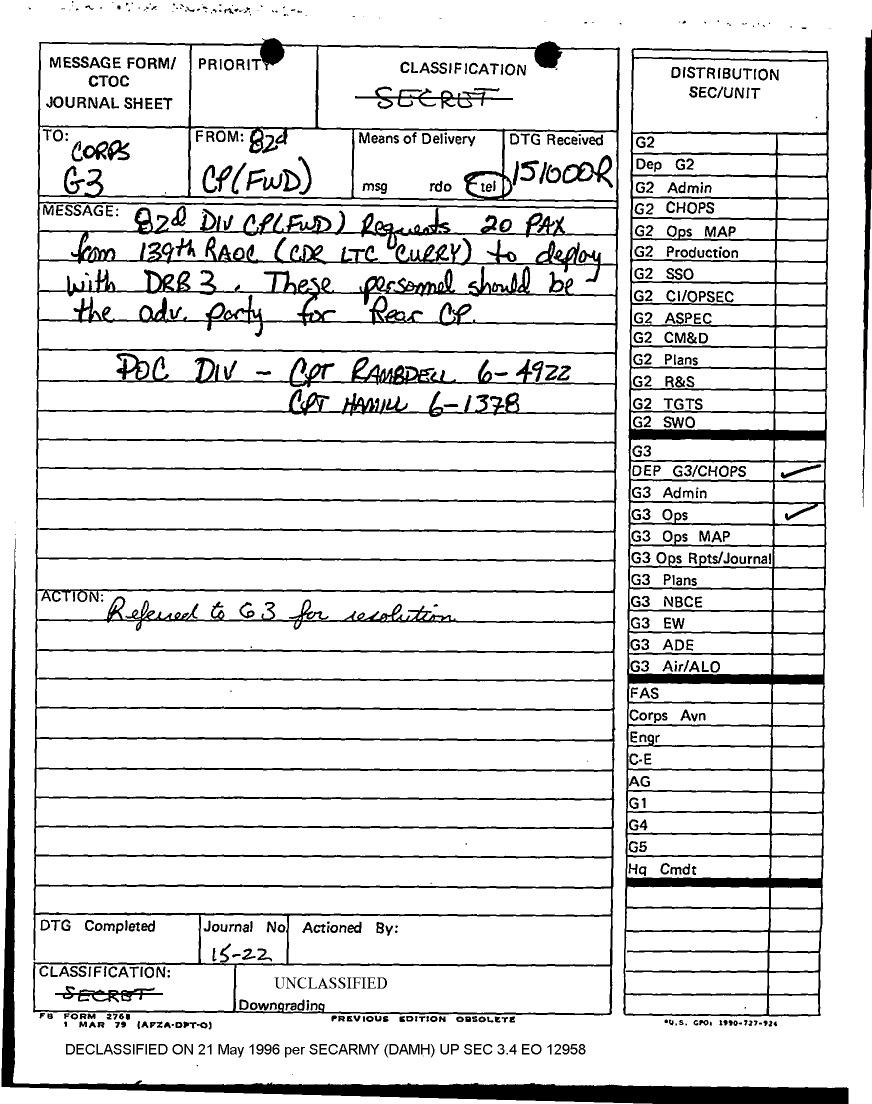 MESSAGE FORM/
CTOC
JOURNAL SHEET
PRIORITY
CLASSIFICATION
SECRET
TO:
CORPS
G3
FROM: 82d
CP(FWD)
Means of Delivery
msg rdo tel
DTG Received
151000R
MESSAGE: 82d DIV CP(FWD) Requests 20 PAX
from 139th RAOC (CDR LTC CURRY) to deploy
with DRB 3. These personnel should be
the adv. party for Rear CP.
POC DIV - CPT RAMBDELL 6-4922
CPT HAMILL 6-1378
ACTION: Referred to G3 for resolution
DTG Completed
Journal No.
15-22
Actioned By:
CLASSIFICATION:
SECRET
UNCLASSIFIED
Downgrading
FB FORM 2768
1 MAR 79 (AFZA-DPT-O)
PREVIOUS EDITION OBSOLETE
DISTRIBUTION
SEC/UNIT
G2
Dep G2
G2 Admin
G2 CHOPS
G2 Ops MAP
G2 Production
G2 SSO
G2 CI/OPSEC
G2 ASPEC
G2 CM&D
G2 Plans
G2 R&S
G2 TGTS
G2 SWO
G3
DEP G3/CHOPS
G3 Admin
G3 Ops
G3 Ops MAP
G3 Ops Rpts/Journal
G3 Plans
G3 NBCE
G3 EW
G3 ADE
G3 Air/ALO
FAS
Corps Avn
Engr
C-E
AG
G1
G4
G5
Hq Cmdt
*U.S. GPO: 1990-727-924
DECLASSIFIED ON 21 May 1996 per SECARMY (DAMH) UP SEC 3.4 EO 12958